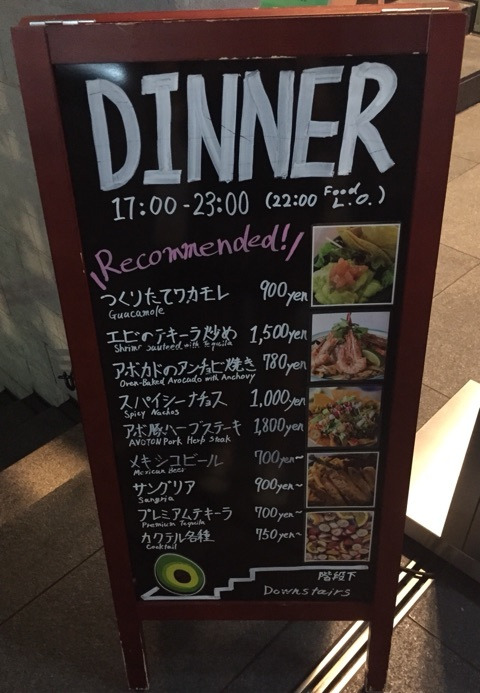 DINNER
17:00-23:00 (22:00 Food L.O.)
Recommended!
つくりたてワカモレ 900yen
Guacamole
エビのテキーラ炒め 1,500yen
Shrimp sauteed with tequila
アボカドのアンチョビ焼き 780yen
Oven-Baked Avocado with Anchovy
スパイシーナチョス 1,000yen
Spicy Nachos
アボ豚ハーブステーキ 1,800yen
AVOTON Pork Herb Steak
メキシコビール 700yen~
Mexican Beer
サングリア 900yen~
Sangria
プレミアムテキーラ 700yen~
Premium Tequila
カクテル各種 750yen~
Cocktail
階段下
Downstairs